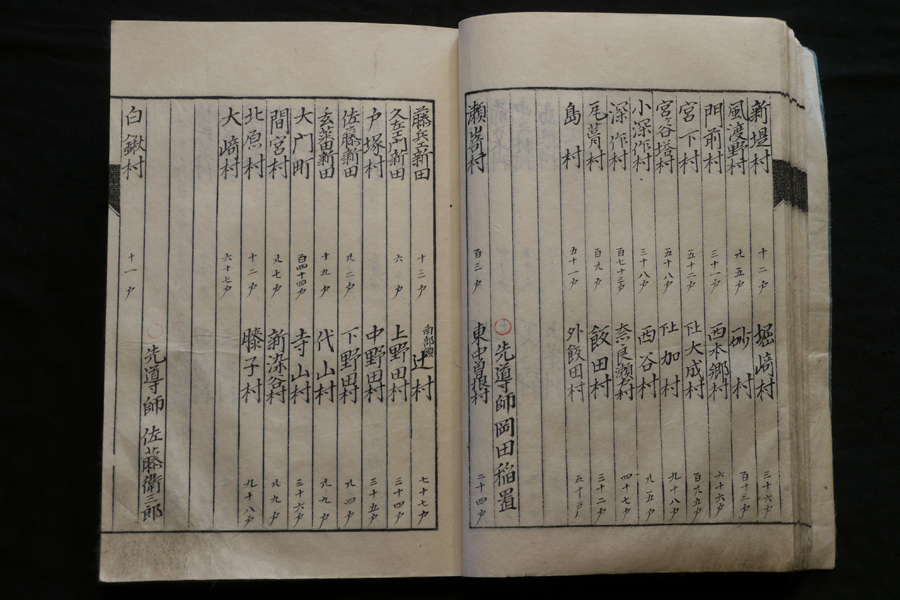 新堤村 十二戸 堀﨑村 三十六戸
風渡野村 九五戸 砂村 百十二戸
門前村 三十一戸 西本郷村 六十六戸
宮下村 五十二戸 大成村 百九五戸
宮谷塔村 五十八戸 加村 九十八戸
小深作村 三十八戸 西谷村 九五戸
深作村 百七十三戸 奈良瀬戸村 四十七戸
村 百九戸 飯田村 三十二戸
島村 五十一戸 外飯田村
先導師岡田稲置
瀬嵜村 百三戸 東中曽根村 二十四戸
藤兵エ新田 十三戸 南部領辻村 七十七戸
久左エ門新田 六戸 上野田村 三十四戸
戸塚村 中野田村 三十五戸
佐藤新田 九二戸 下野田村 九四戸
玄蕃新田 十九戸 代山村 九九戸
大门町 百四十四戸 寺山村 三十六戸
間宮村 九七戸 新染谷村 九九戸
北原村 十二戸 膝子村 九十八戸
大﨑村 六十七戸
先導師 佐藤衛三郎
白鍬村 十一戸